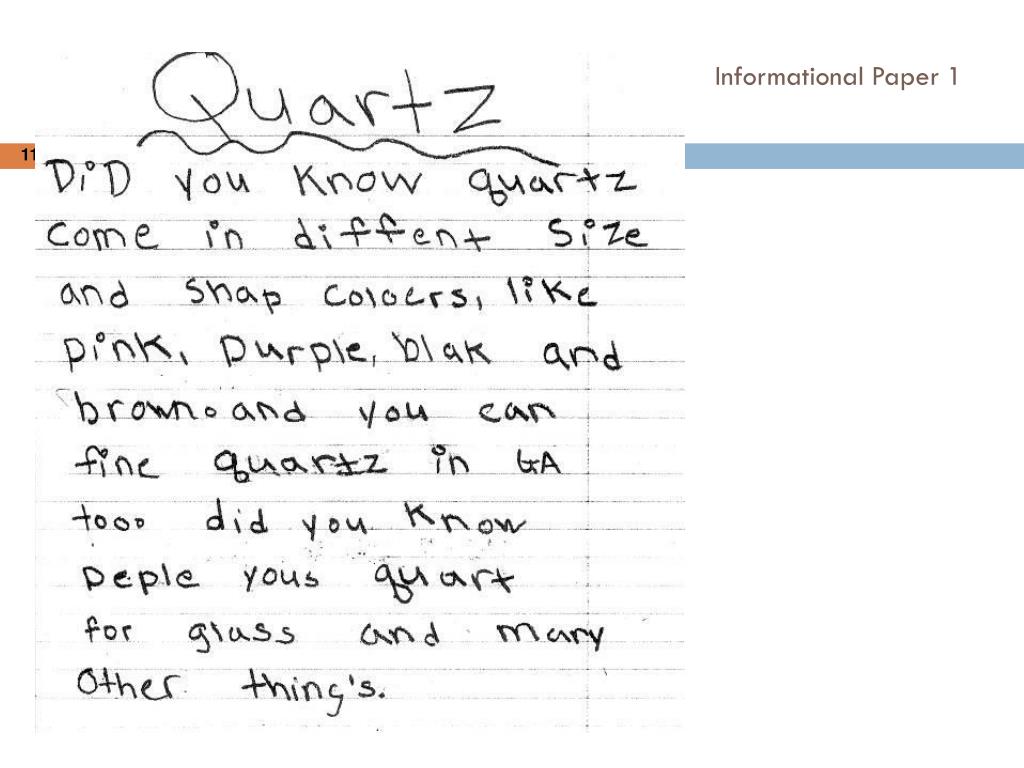 Informational Paper 1
11
Quartz
DiD you Know quartz
come in diffent Size
and Shap coloers, like
pink, purple, blak and
brown. and you can
fine quartz in GA
too. did you Know
peple yous quart
for glass and many
Other thing's.